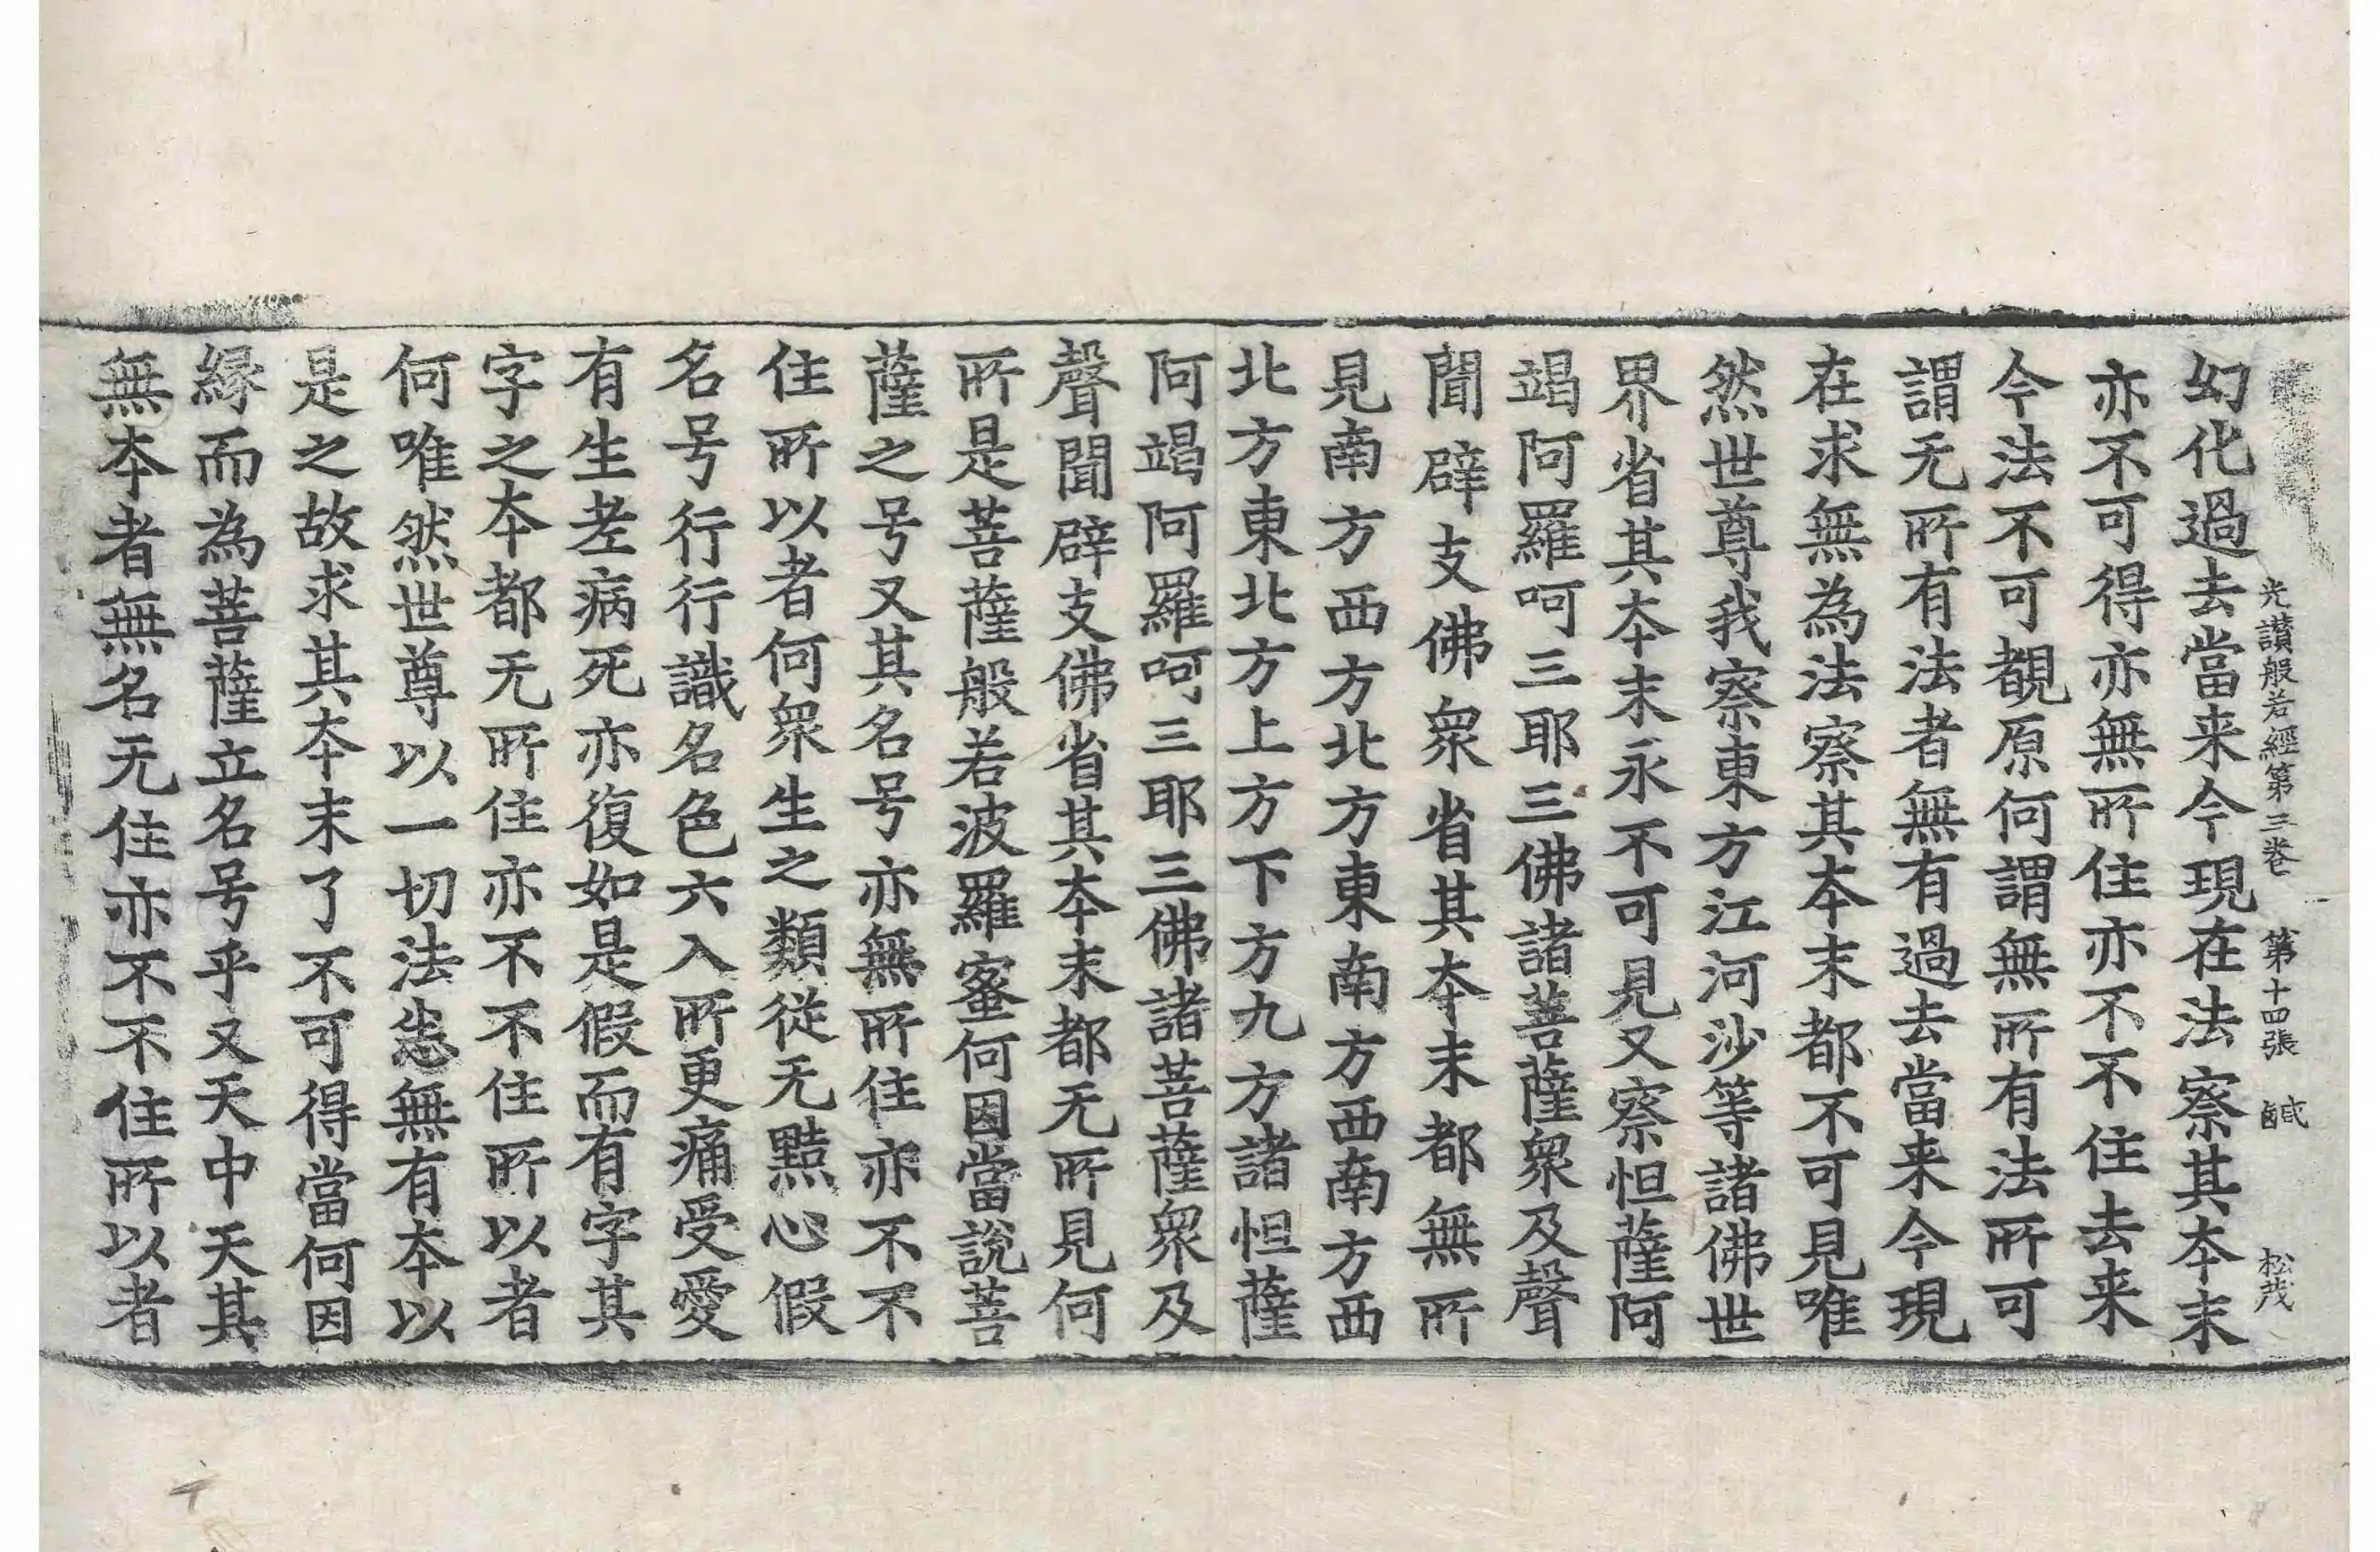 光讃般若經第三卷 第十四張 鹹 松茂
幻化過去當来今現在法察其夲末
亦不可得亦無所住亦不不住去来
今法不可覩原何謂無所有法所可
謂无所有法者無有過去當来今現
在求無為法察其夲末都不可見唯
然世尊我察東方江河沙等諸佛世
界省其夲末永不可見又察怛薩阿
竭阿羅呵三耶三佛諸菩薩衆及聲
聞辟支佛衆省其夲末都無所
見南方西方北方東南方西南方西
北方東北方上方下方九方諸怛薩
阿竭阿羅呵三耶三佛諸菩薩衆及
聲聞辟支佛省其夲末都无所見何
所是菩薩般若波羅蜜何因當說菩
薩之号又其名号亦無所住亦不不
住所以者何衆生之類從无黠心假
名号行行識名色六入所更痛受愛
有生老病死亦復如是假而有字其
字之夲都无所住亦不不住所以者
何唯然世尊以一切法悉無有夲以
是之故求其夲末了不可得當何因
縁而為菩薩立名号乎又天中天其
無夲者無名无住亦不不住所以者